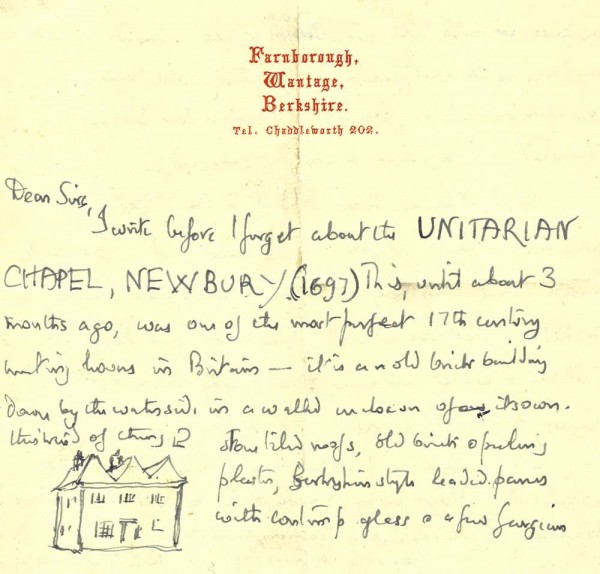 Farnborough,
Wantage,
Berkshire.
Tel. Chaddleworth 202.
Dear Sirs,
I write before I forget about the UNITARIAN
CHAPEL, NEWBURY (1697) This, until about 3
months ago, was one of the most perfect 17th century
meeting houses in Britain — it is an old brick building
down by the waterside in a walled enclosure of its own.
this kind of thing
stone tiled roofs, old brick & peeling
plaster, style leaded panes
with contemp glass & a few Georgian